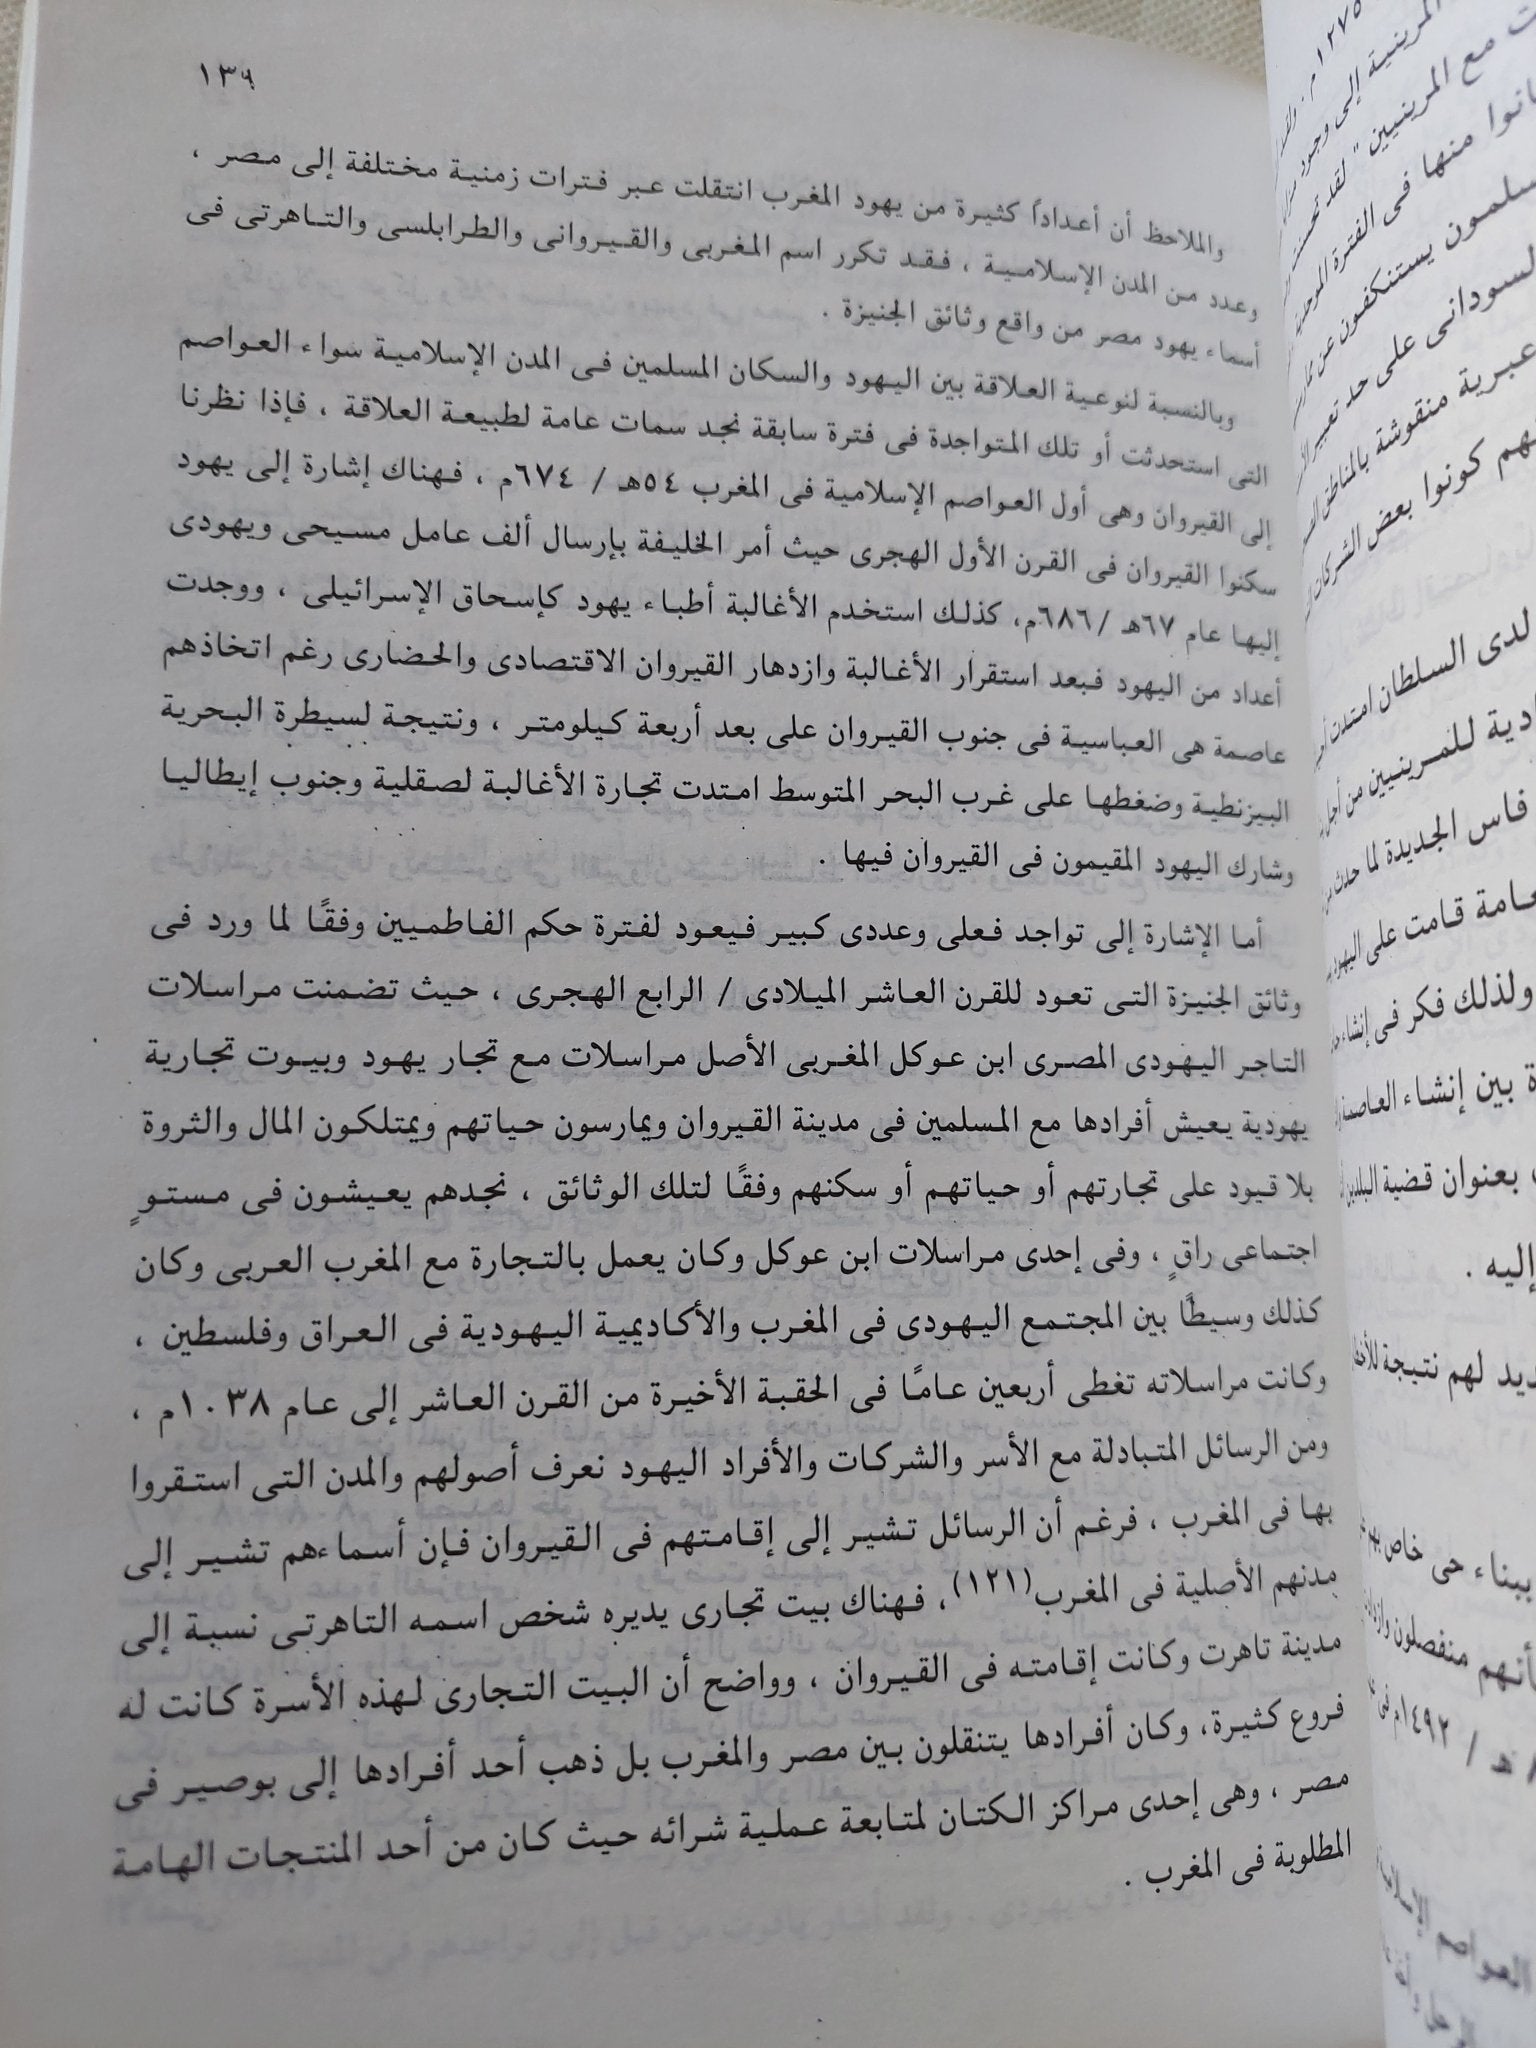 والملاحظ أن أعداداً كثيرة من يهود المغرب انتقلت عبر فترات زمنية مختلفة إلى مصر ،
وعدد من المدن الإسلامية ، فقد تكرر اسم المغربى والقيروانى والطرابلسى والتاهرتى فى
أسماء يهود مصر من واقع وثائق الجنيزة .
وبالنسبة لنوعية العلاقة بين اليهود والسكان المسلمين فى المدن الإسلامية سواء العواصم
التى استحدثت أو تلك المتواجدة فى فترة سابقة نجد سمات عامة لطبيعة العلاقة ، فإذا نظرنا
إلى القيروان وهى أول العواصم الإسلامية فى المغرب ٥٤هـ / ٦٧٤م ، فهناك إشارة إلى يهود
سكنوا القيروان فى القرن الأول الهجرى حيث أمر الخليفة بإرسال ألف عامل مسيحى ويهودى
إليها عام ٦٧هـ /٦٨٦م، كذلك استخدم الأغالبة أطباء يهود كإسحاق الإسرائيلى ، ووجدت
أعداد من اليهود فبعد استقرار الأغالبة وازدهار القيروان الاقتصادى والحضارى رغم اتخاذهم
عاصمة هى العباسية فى جنوب القيروان على بعد أربعة كيلومتر ، ونتيجة لسيطرة البحرية
البيزنطية وضغطها على غرب البحر المتوسط امتدت تجارة الأغالبة لصقلية وجنوب إيطاليا
وشارك اليهود المقيمون فى القيروان فيها .
أما الإشارة إلى تواجد فعلى وعددى كبير فيعود لفترة حكم الفاطميين وفقًا لما ورد فى
وثائق الجنيزة التى تعود للقرن العاشر الميلادى / الرابع الهجرى ، حيث تضمنت مراسلات
التاجر اليهودى المصرى ابن عوكل المغربى الأصل مراسلات مع تجار يهود وبيوت تجارية
يهودية يعيش أفرادها مع المسلمين فى مدينة القيروان ويمارسون حياتهم ويمتلكون المال والثروة
بلا قيود على تجارتهم أو حياتهم أو سكنهم وفقًا لتلك الوثائق ، نجدهم يعيشون فى مستوٍ
اجتماعى راقٍ ، وفى إحدى مراسلات ابن عوكل وكان يعمل بالتجارة مع المغرب العربى وكان
كذلك وسيطًا بين المجتمع اليهودى فى المغرب والأكاديمية اليهودية فى العراق وفلسطين ،
وكانت مراسلاته تغطى أربعين عامًا فى الحقبة الأخيرة من القرن العاشر إلى عام ١٠٣٨م ،
ومن الرسائل المتبادلة مع الأسر والشركات والأفراد اليهود نعرف أصولهم والمدن التى استقروا
بها فى المغرب ، فرغم أن الرسائل تشير إلى إقامتهم فى القيروان فإن أسماءهم تشير إلى
مدنهم الأصلية فى المغرب(١٢١)، فهناك بيت تجارى يديره شخص اسمه التاهرتى نسبة إلى
مدينة تاهرت وكانت إقامته فى القيروان ، وواضح أن البيت التجارى لهذه الأسرة كانت له
فروع كثيرة، وكان أفرادها يتنقلون بين مصر والمغرب بل ذهب أحد أفرادها إلى بوصير فى
مصر ، وهى إحدى مراكز الكتان لمتابعة عملية شرائه حيث كان من أحد المنتجات الهامة
المطلوبة فى المغرب .
١٢٧٥م
المرينية إلى وجود
مع المرينيين " لقد تحسنت
منها فى الفترة الموحدية
يستنكفون عن
السودانى على حد تعبير
عبرية منقوشة بالمناطق
كونوا بعض الشركات
لدى السلطان امتدت
للمرينيين من أجل
فاس الجديدة لما حدث
قامت على اليهود
ولذلك فكر فى إنشاء
بين إنشاء العاصمة
بعنوان قضية البلديين
إليه .
لهم نتيجة
ببناء حى خاص بهم
منفصلون
هـ / ١٤٩٢م فى
العواصم